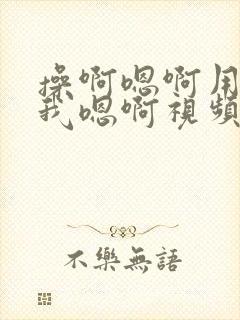 操啊嗯啊用
我嗯啊視頻
不樂無語